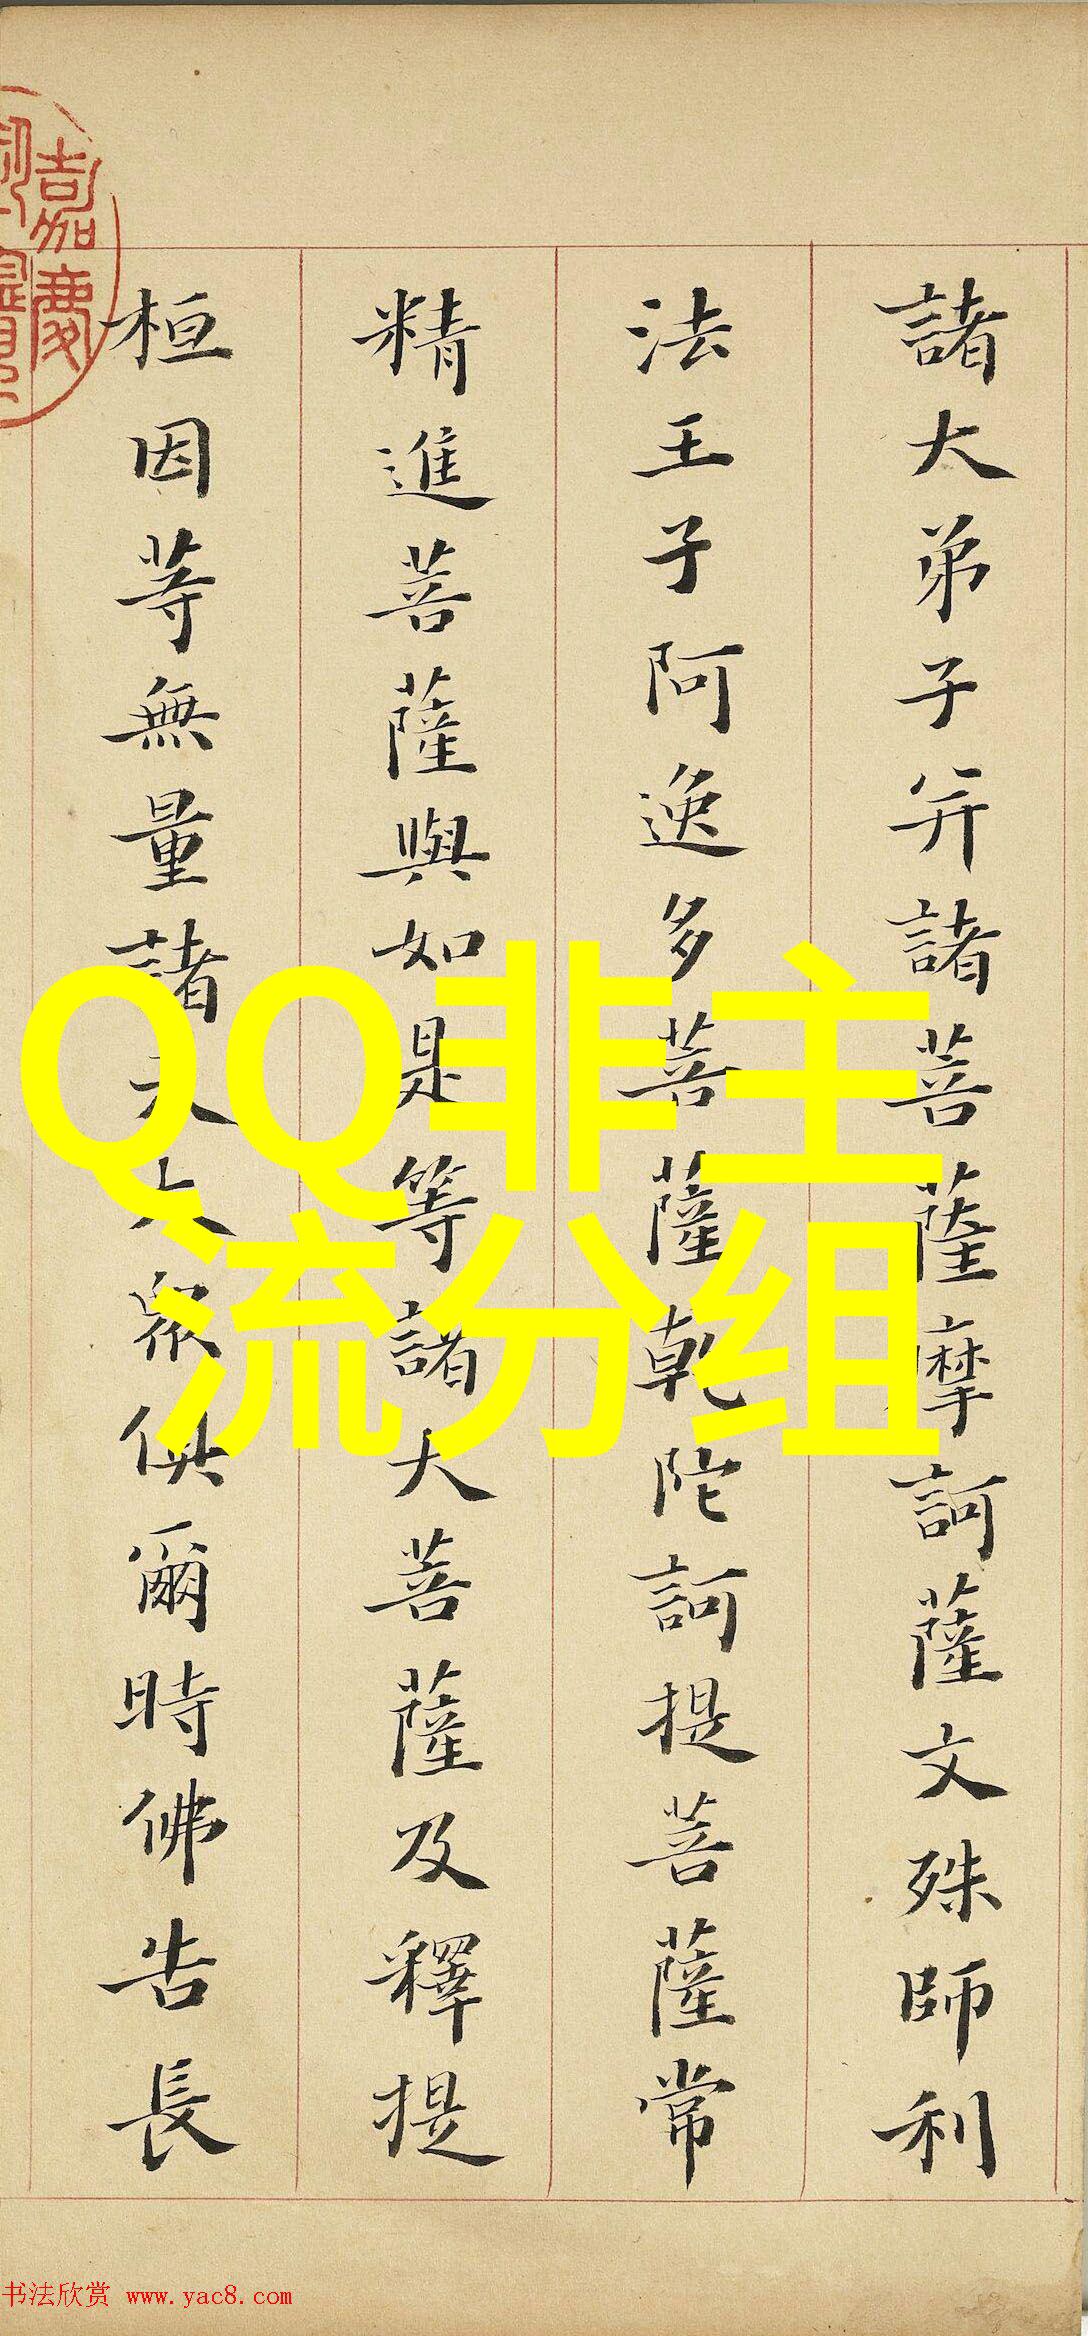 諸大弟子并諸菩薩摩訶薩文殊師利
法王子阿逸多菩薩乾陀訶提菩薩常
精進菩薩與如是等諸大菩薩及釋提
桓因等無量諸天大眾俱爾時佛告長
嘉慶
QQ非主
流分组
书法欣赏 www.yac8.com